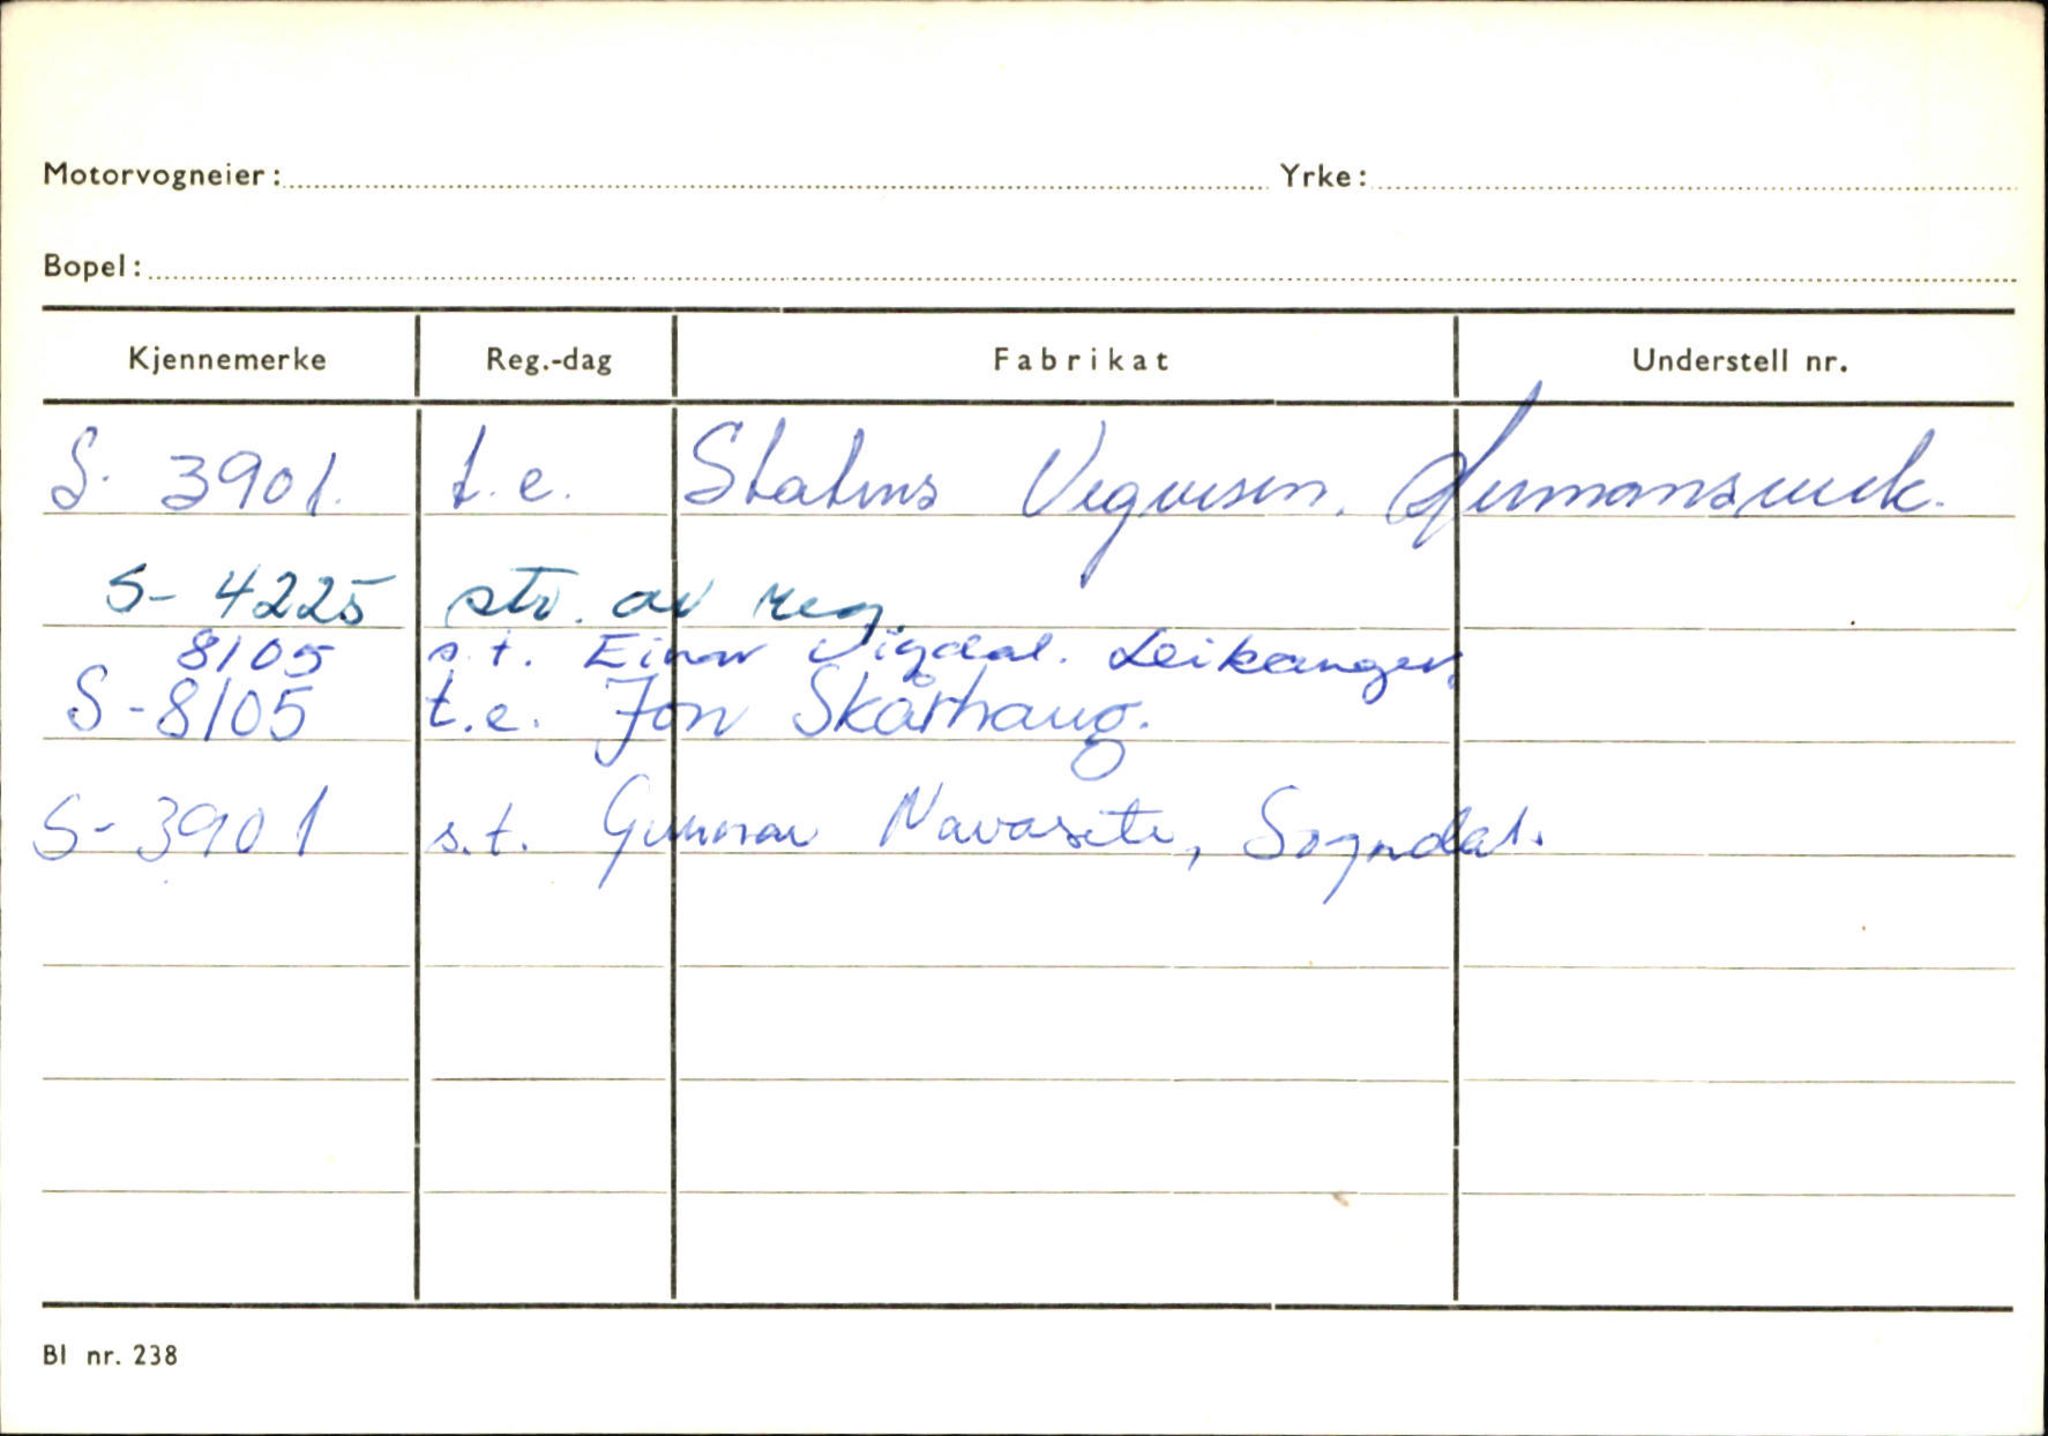 Motorvogneier: Yrke:
Bopel:
Kjennemerke Reg.-dag Fabrikat Understell nr.
S. 3901. t.e. Statens Vegvesen. Hermansverk.
S- 4225 str. av reg.
8105 s.t. Einar Vigdal. Leikanger.
S-8105 t.e. Jon Skårhaug.
S- 3901 s.t. Gunnar Navarsete, Sogndal.
Bl nr. 238